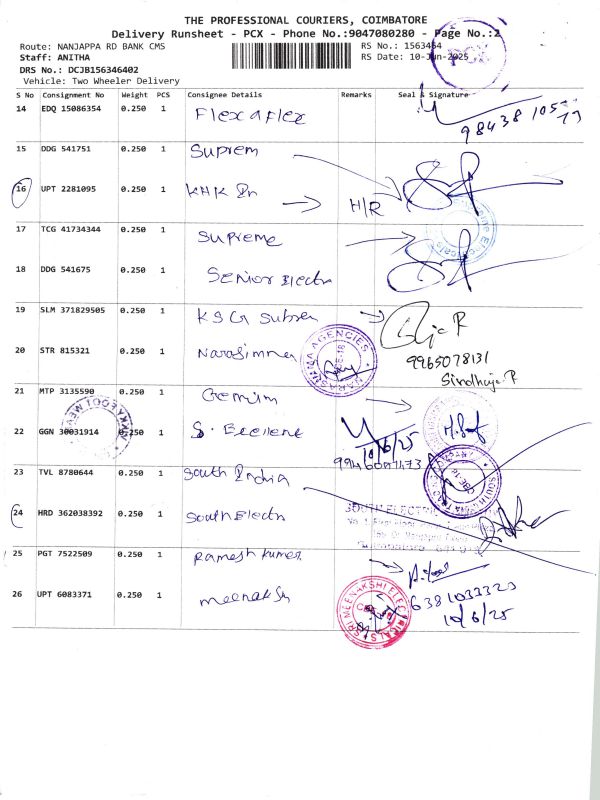 THE PROFESSIONAL COURIERS, COIMBATORE
Delivery Runsheet - PCX - Phone No.:9047080280 - Page No.:2
Route: NANJAPPA RD BANK CMS
RS No.: 1563464
Staff: ANITHA
RS Date: 10-Jun-2025
DRS No.: DCJB156346402
Vehicle: Two Wheeler Delivery
PCX
S No Consignment No Weight PCS Consignee Details Remarks Seal & Signature
14 EDQ 15086354 0.250 1 Flex a flex
98438 105
15 DDG 541751 0.250 1 Suprem
16 UPT 2281095 0.250 1 KHK En H/R
17 TCG 41734344 0.250 1 Supreme
18 DDG 541675 0.250 1 Senior Electr
19 SLM 371829505 0.250 1 K S G Subren
20 STR 815321 0.250 1 Narasimma
9965078131
Sindhuja.R
NARASIMMA AGENCIES
CBE-18
21 MTP 3135590 0.250 1 Gemini
22 GGN 30031914 0.250 1 S. Excellent
10/6/25
23 TVL 8780644 0.250 1 South India
24 HRD 362038392 0.250 1 South Electr
SOUTH ELECTRIC
25 PGT 7522509 0.250 1 Ramesh kumar
26 UPT 6083371 0.250 1 meenaksh
6381033320
10/6/25
SRI MEENAKSHI ELECTRICALS